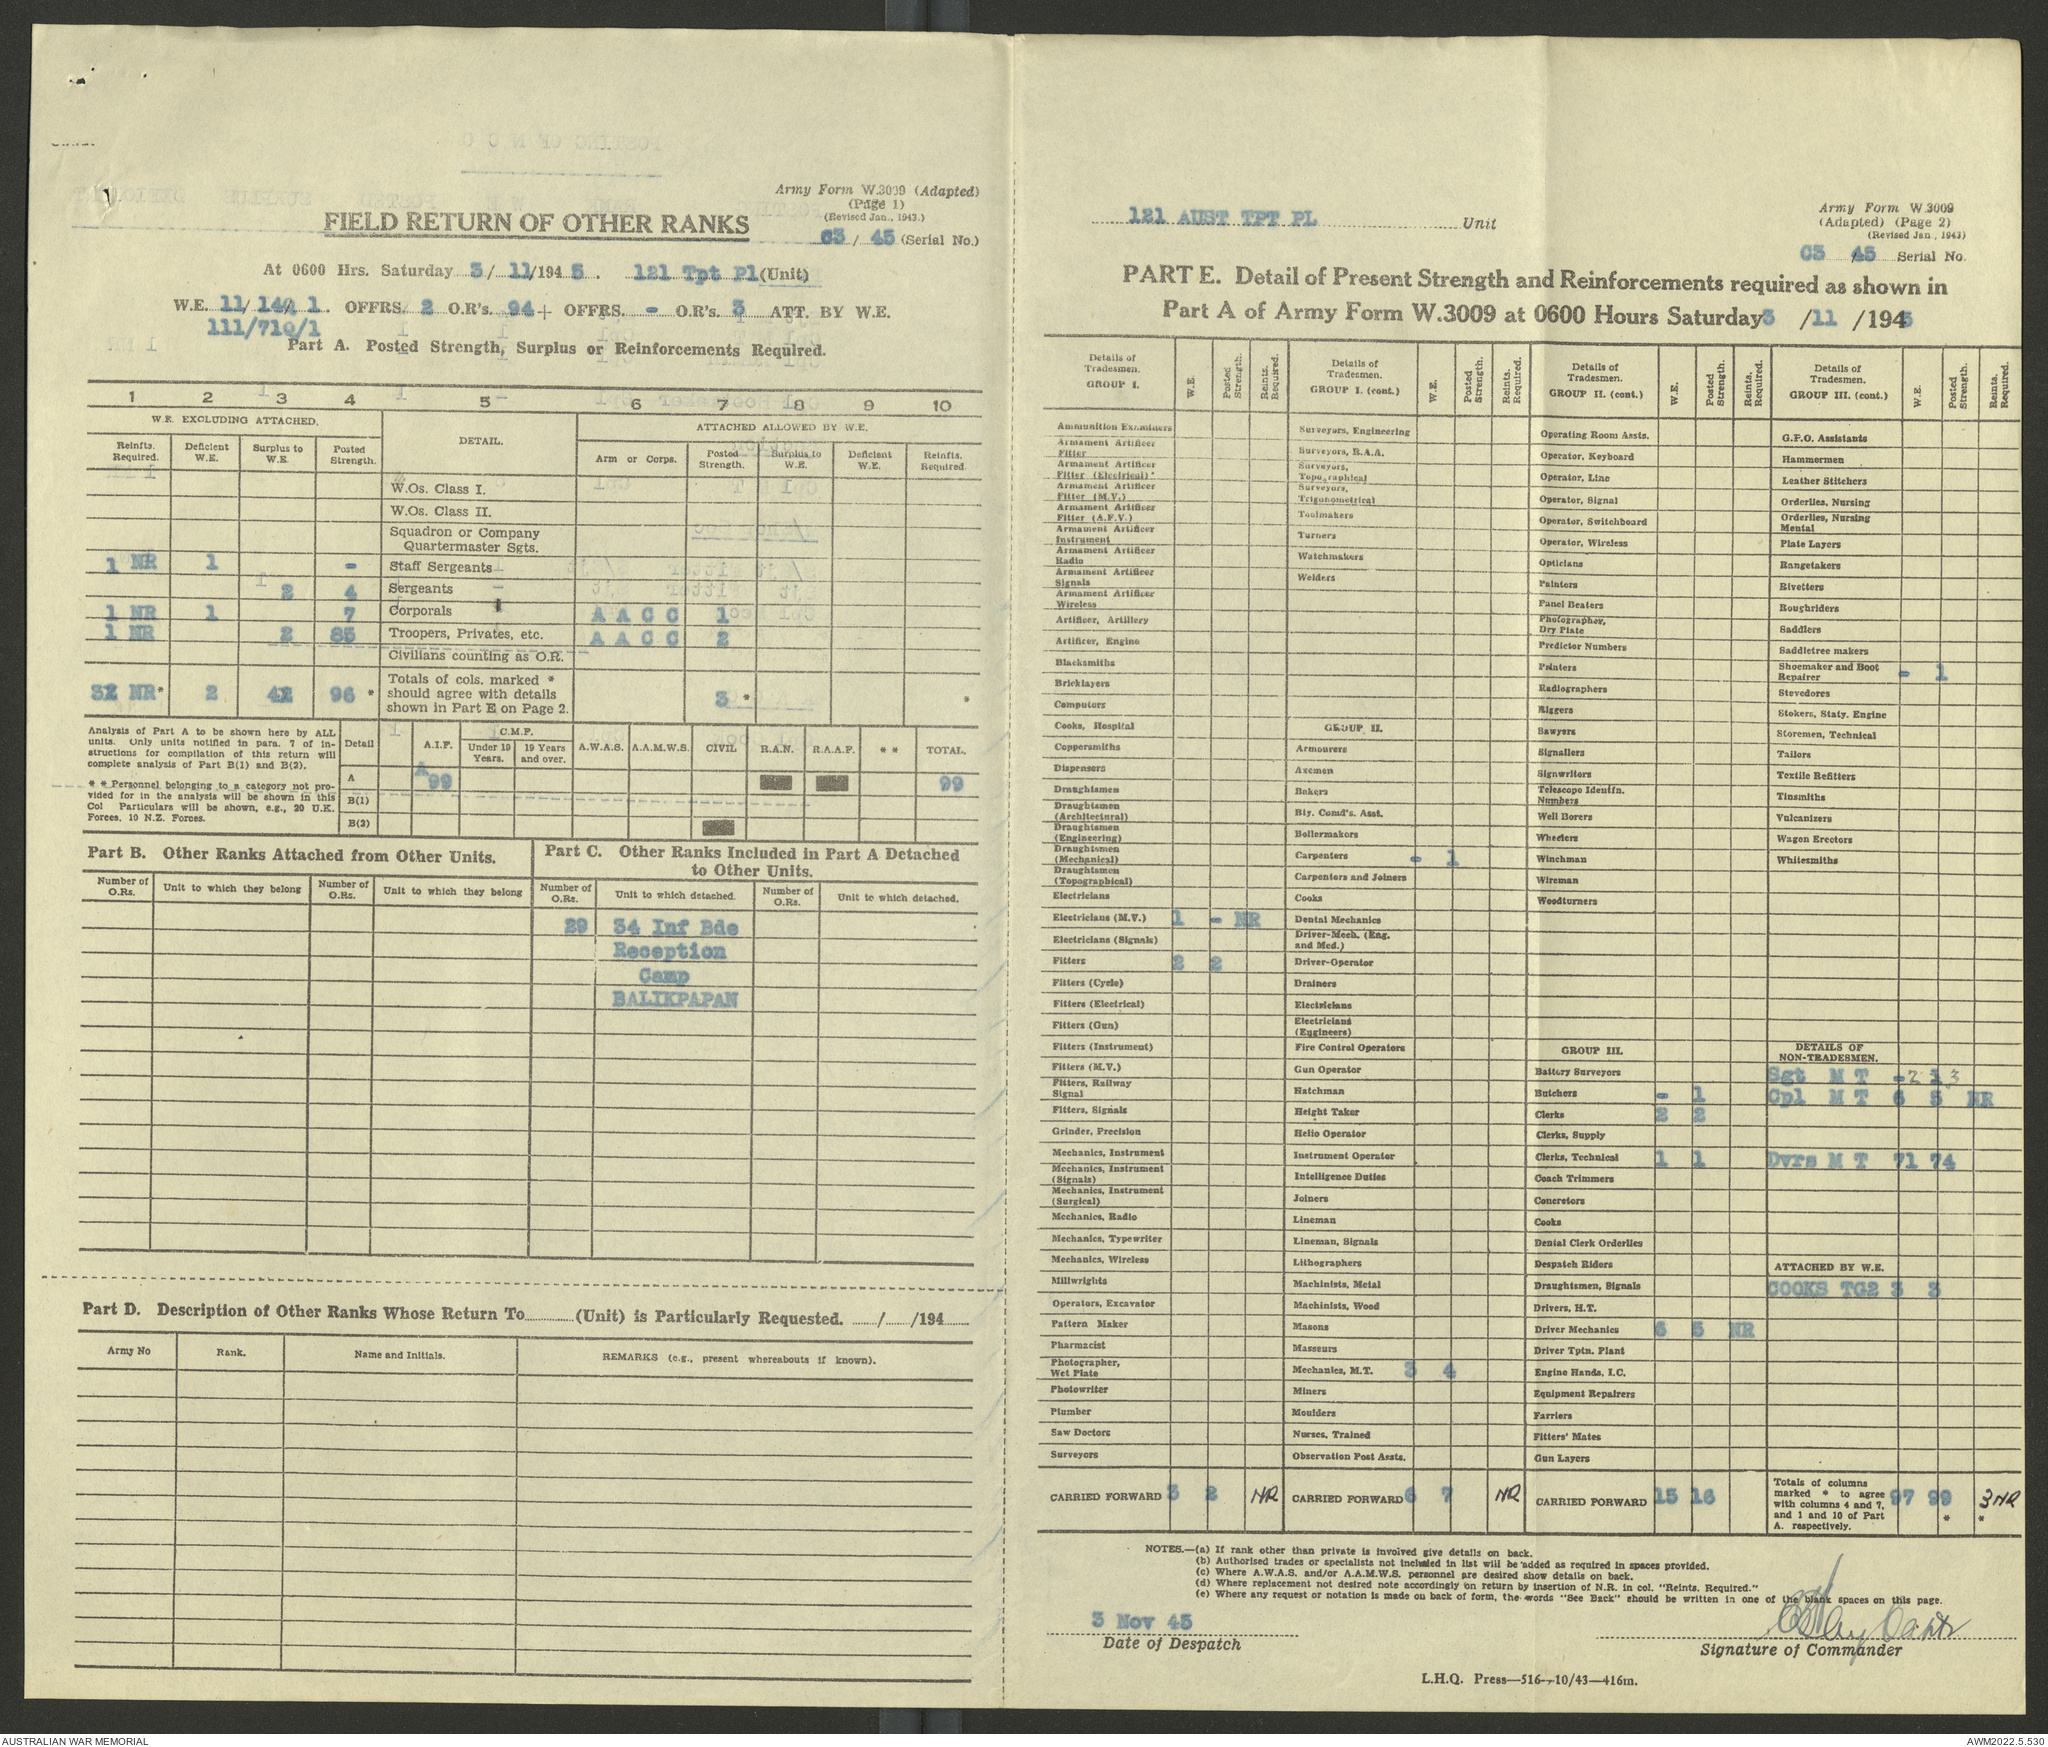 Army Form W.3009 (Adapted)
(Page 1)
(Revised Jan., 1943.)
FIELD RETURN OF OTHER RANKS
63/ 45 (Serial No.)
At 0600 Hrs. Saturday 3/ 11/194 5. 121 Tpt Pl (Unit)
W.E. 11/ 140 1. OFFRS. 2 O.R's. 94 + OFFRS. - O.R's. 3 ATT. BY W.E.
111/710/1
Part A. Posted Strength, Surplus or Reinforcements Required.
1 2 3 4 5 6 7 8 9 10
W.E. EXCLUDING ATTACHED. DETAIL. ATTACHED ALLOWED BY W.E.
Reinfts. Required. Deficient W.E. Surplus to W.E. Posted Strength. Arm or Corps. Posted Strength. Surplus to W.E. Deficient W.E. Reinfts. Required.
W.Os. Class I.
W.Os. Class II.
Squadron or Company
Quartermaster Sgts.
1 NR 1 - Staff Sergeants
2 4 Sergeants
1 NR 1 7 Corporals A A C C 1
1 NR 2 85 Troopers, Privates, etc. A A C C 2
Civilians counting as O.R.
Totals of cols. marked *
should agree with details
shown in Part E on Page 2.
NR * 2 4 96 * 3 * *
Analysis of Part A to be shown here by ALL
units. Only units notified in para. 7 of in-
structions for compilation of this return will
complete analysis of Part B(1) and B(2).
* * Personnel belonging to a category not pro-
vided for in the analysis will be shown in this
Col Particulars will be shown, e.g., 20 U.K.
Forces, 10 N.Z. Forces.
Detail A.I.F. C.M.F. Under 19 Years. 19 Years and over. A.W.A.S. A.A.M.W.S. CIVIL R.A.N. R.A.A.F. * * TOTAL.
A 99 99
B(1)
B(2)
Part B. Other Ranks Attached from Other Units.
Part C. Other Ranks Included in Part A Detached
to Other Units.
Number of O.Rs. Unit to which they belong Number of O.Rs. Unit to which they belong Number of O.Rs. Unit to which detached. Number of O.Rs. Unit to which detached.
29 34 Inf Bde
Reception
Camp
BALIKPAPAN
Part D. Description of Other Ranks Whose Return To............(Unit) is Particularly Requested. ....../....../194......
Army No Rank. Name and Initials. REMARKS (e.g., present whereabouts if known).
121 AUST TPT PL Unit
Army Form W.3009
(Adapted) (Page 2)
(Revised Jan., 1943)
C3 45 Serial No.
PART E. Detail of Present Strength and Reinforcements required as shown in
Part A of Army Form W.3009 at 0600 Hours Saturday 3 /11 /1945
Details of Tradesmen. GROUP I. W.E. Posted Strength. Reints. Required.
Ammunition Examiners
Armament Artificer Fitter
Armament Artificer Fitter (Electrical)
Armament Artificer Fitter (M.V.)
Armament Artificer Fitter (A.F.V.)
Armament Artificer Instrument
Armament Artificer Radio
Armament Artificer Signals
Armament Artificer Wireless
Artificer, Artillery
Artificer, Engine
Blacksmiths
Bricklayers
Computors
Cooks, Hospital
Coppersmiths
Dispensers
Draughtsmen
Draughtsmen (Architectural)
Draughtsmen (Engineering)
Draughtsmen (Mechanical)
Draughtsmen (Topographical)
Electricians
Electricians (M.V.) 1 - NR
Electricians (Signals)
Fitters 2 2
Fitters (Cycle)
Fitters (Electrical)
Fitters (Gun)
Fitters (Instrument)
Fitters (M.V.)
Fitters, Railway Signal
Fitters, Signals
Grinder, Precision
Mechanics, Instrument
Mechanics, Instrument (Signals)
Mechanics, Instrument (Surgical)
Mechanics, Radio
Mechanics, Typewriter
Mechanics, Wireless
Millwrights
Operators, Excavator
Pattern Maker
Pharmacist
Photographer, Wet Plate
Photowriter
Plumber
Saw Doctors
Surveyors
CARRIED FORWARD 3 2 NR
Details of Tradesmen. GROUP I. (cont.) W.E. Posted Strength. Reints. Required.
Surveyors, Engineering
Surveyors, R.A.A.
Surveyors, Topographical
Surveyors, Trigonometrical
Toolmakers
Turners
Watchmakers
Welders
GROUP II.
Armourers
Axemen
Bakers
Bty. Comd's. Asst.
Boilermakers
Carpenters - 1
Carpenters and Joiners
Cooks
Dental Mechanics
Driver-Mech. (Eng. and Med.)
Driver-Operator
Drainers
Electricians
Electricians (Engineers)
Fire Control Operators
Gun Operator
Hatchman
Height Taker
Helio Operator
Instrument Operator
Intelligence Duties
Joiners
Lineman
Lineman, Signals
Lithographers
Machinists, Metal
Machinists, Wood
Masons
Masseurs
Mechanics, M.T. 3 4
Miners
Moulders
Nurses, Trained
Observation Post Assts.
CARRIED FORWARD 6 7 NR
Details of Tradesmen. GROUP II. (cont.) W.E. Posted Strength. Reints. Required.
Operating Room Assts.
Operator, Keyboard
Operator, Line
Operator, Signal
Operator, Switchboard
Operator, Wireless
Opticians
Painters
Panel Beaters
Photographer, Dry Plate
Predictor Numbers
Printers
Radiographers
Riggers
Sawyers
Signallers
Signwriters
Telescope Identfn. Numbers
Well Borers
Wheelers
Winchman
Wireman
Woodturners
GROUP III.
Battery Surveyors
Butchers - 1
Clerks 2 2
Clerks, Supply
Clerks, Technical 1 1
Coach Trimmers
Concretors
Cooks
Dental Clerk Orderlies
Despatch Riders
Draughtsmen, Signals
Drivers, H.T.
Driver Mechanics 6 5 NR
Driver Tptn. Plant
Engine Hands, I.C.
Equipment Repairers
Farriers
Fitters' Mates
Gun Layers
CARRIED FORWARD 15 16
Details of Tradesmen. GROUP III. (cont.) W.E. Posted Strength. Reints. Required.
G.P.O. Assistants
Hammermen
Leather Stitchers
Orderlies, Nursing
Orderlies, Nursing Mental
Plate Layers
Rangetakers
Rivetters
Roughriders
Saddlers
Saddletree makers
Shoemaker and Boot Repairer - 1
Stevedores
Stokers, Staty. Engine
Storemen, Technical
Tailors
Textile Refitters
Tinsmiths
Vulcanizers
Wagon Erectors
Whitesmiths
DETAILS OF NON-TRADESMEN.
Sgt M T - 2 1 3
Cpl M T 6 5 NR
Dvrs M T 71 74
ATTACHED BY W.E.
COOKS TG2 3 3
Totals of columns
marked * to agree
with columns 4 and 7,
and 1 and 10 of Part
A. respectively.
97 99 * 3 NR *
NOTES.—(a) If rank other than private is involved give details on back.
(b) Authorised trades or specialists not included in list will be added as required in spaces provided.
(c) Where A.W.A.S. and/or A.A.M.W.S. personnel are desired show details on back.
(d) Where replacement not desired note accordingly on return by insertion of N.R. in col. "Reints. Required."
(e) Where any request or notation is made on back of form, the words "See Back" should be written in one of the blank spaces on this page.
3 Nov 45
Date of Despatch
Capt
Signature of Commander
L.H.Q. Press—516—10/43—416m.
AUSTRALIAN WAR MEMORIAL
AWM2022.5.530